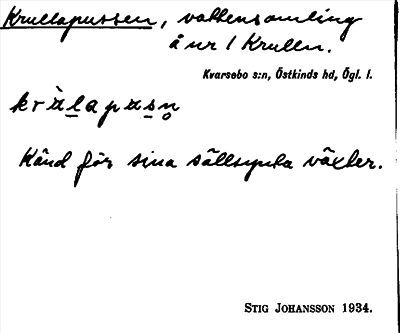 Krullapussen, vattensamling
å nr 1 Krullen.
Kvarsebo s:n, Östkinds hd, Ögl. l.
Känd för sina sällsynta växter.
STIG JOHANSSON 1934.